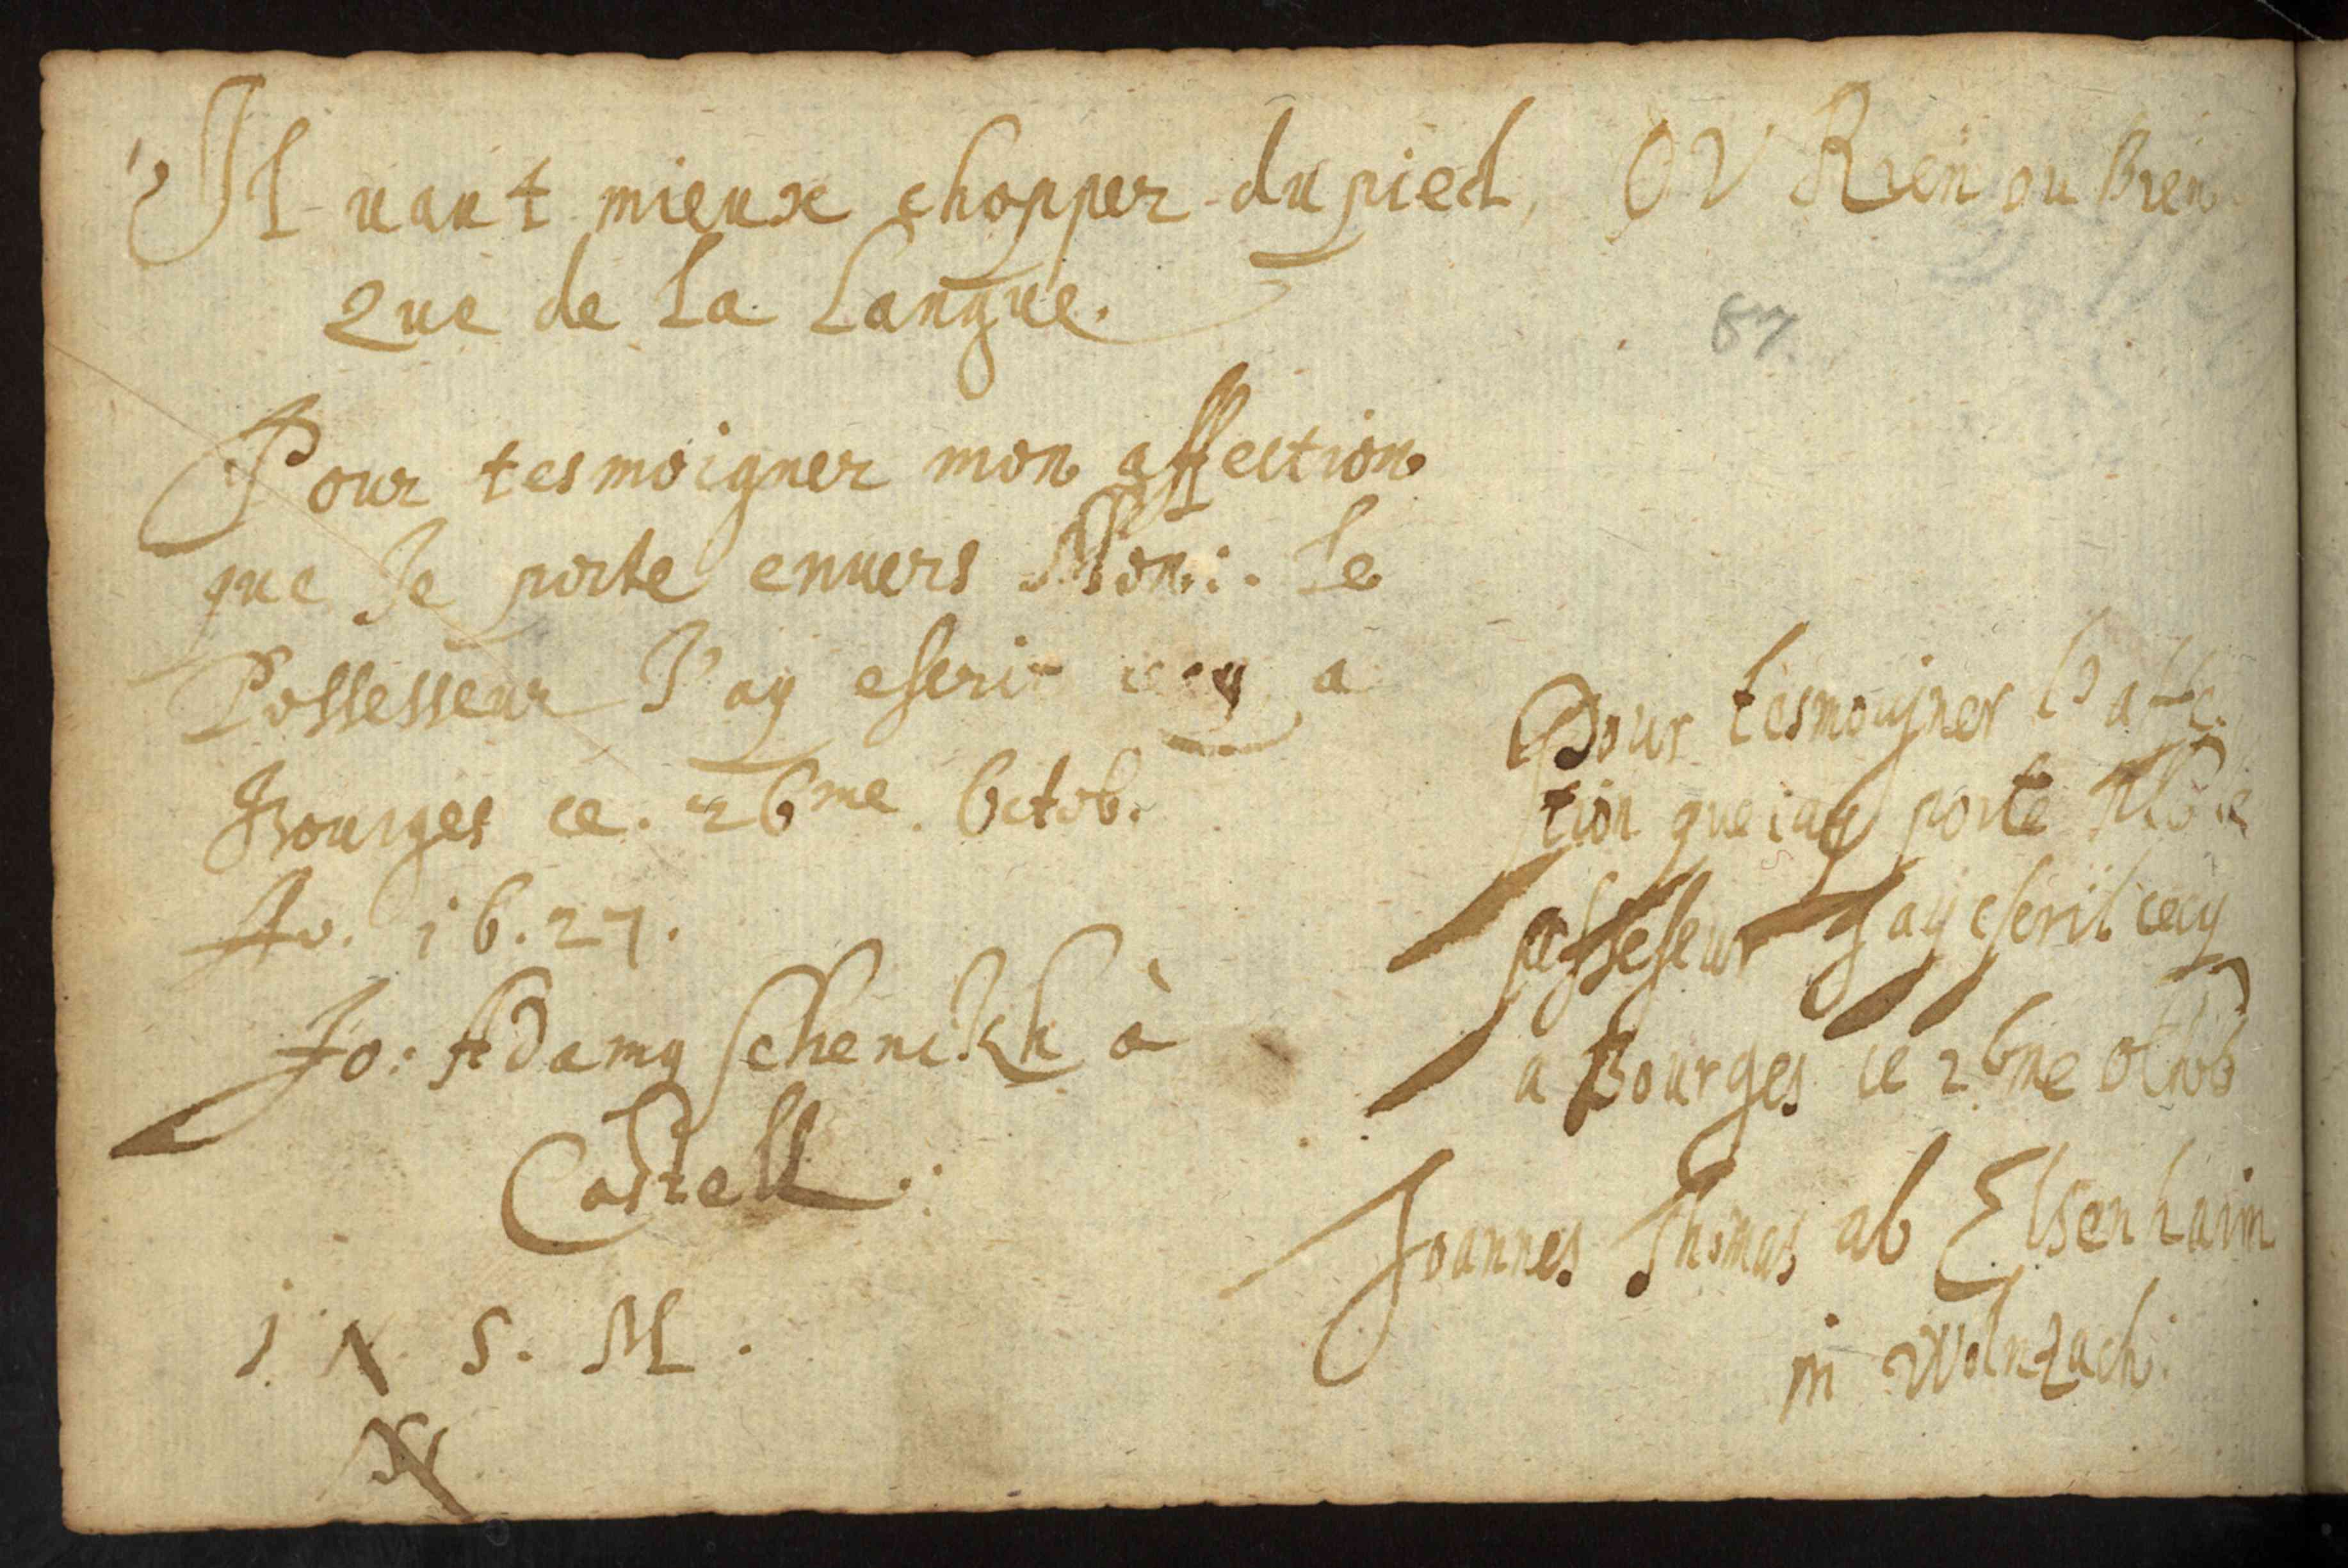 Il vaut mieux chopper du pied,
Que de la Langue.
Pour tesmoigner mon affection
que Je porte envers Mons: le
Possesseur J'ay escrit cecy a
Bourges ce. 26me. Octob.
Ao. 16.27.
Jo: Adamq Schenckh à
Castell.
J N S. M.
OV Rien ou Bien
87.
Pour tesmoigner l'affe
tion que iay porte
possesseur J ay escrit cecy
a Bourges ce 26me Octob
Joannes Thomas ab Elsenhaim
in Wolnzach.